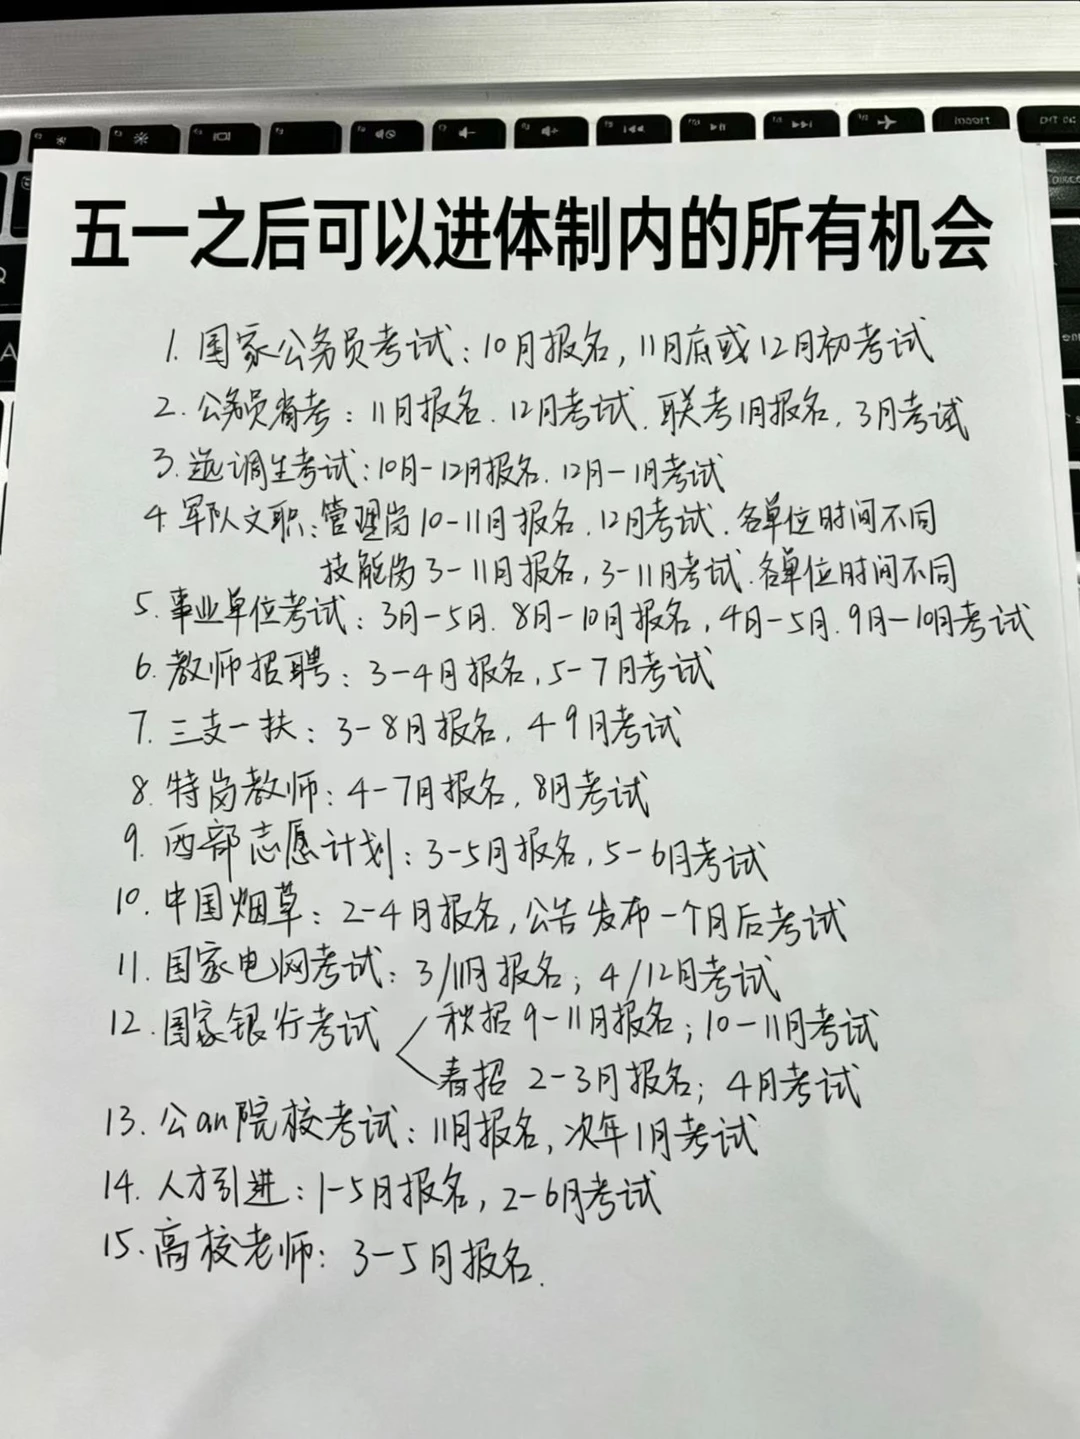 五一之后可以进体制内的所有机会
1. 国家公务员考试：10月报名，11月底或12月初考试
2. 公务员省考：11月报名．12月考试．联考1月报名，3月考试
3. 选调生考试：10月-12月报名．12月-1月考试
4. 军队文职：管理岗10-11月报名．12月考试．各单位时间不同
技能岗3-11月报名，3-11月考试．各单位时间不同
5. 事业单位考试：3月-5月．8月-10月报名，4月-5月．9月-10月考试
6. 教师招聘：3-4月报名，5-7月考试
7. 三支一扶：3-8月报名，4-9月考试
8. 特岗教师：4-7月报名，8月考试
9. 西部志愿计划：3-5月报名，5-6月考试
10. 中国烟草：2-4月报名，公告发布一个月后考试
11. 国家电网考试：3/11月报名；4/12月考试
12. 国家银行考试
秋招9-11月报名；10-11月考试
春招 2-3月报名；4月考试
13. 公an院校考试：11月报名，次年1月考试
14. 人才引进：1-5月报名，2-6月考试
15. 高校老师：3-5月报名．
insert